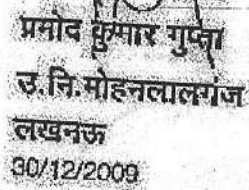 प्रमोद कुमार गुप्ता
उ.नि.मोहनलालगंज
लखनऊ
30/12/2009